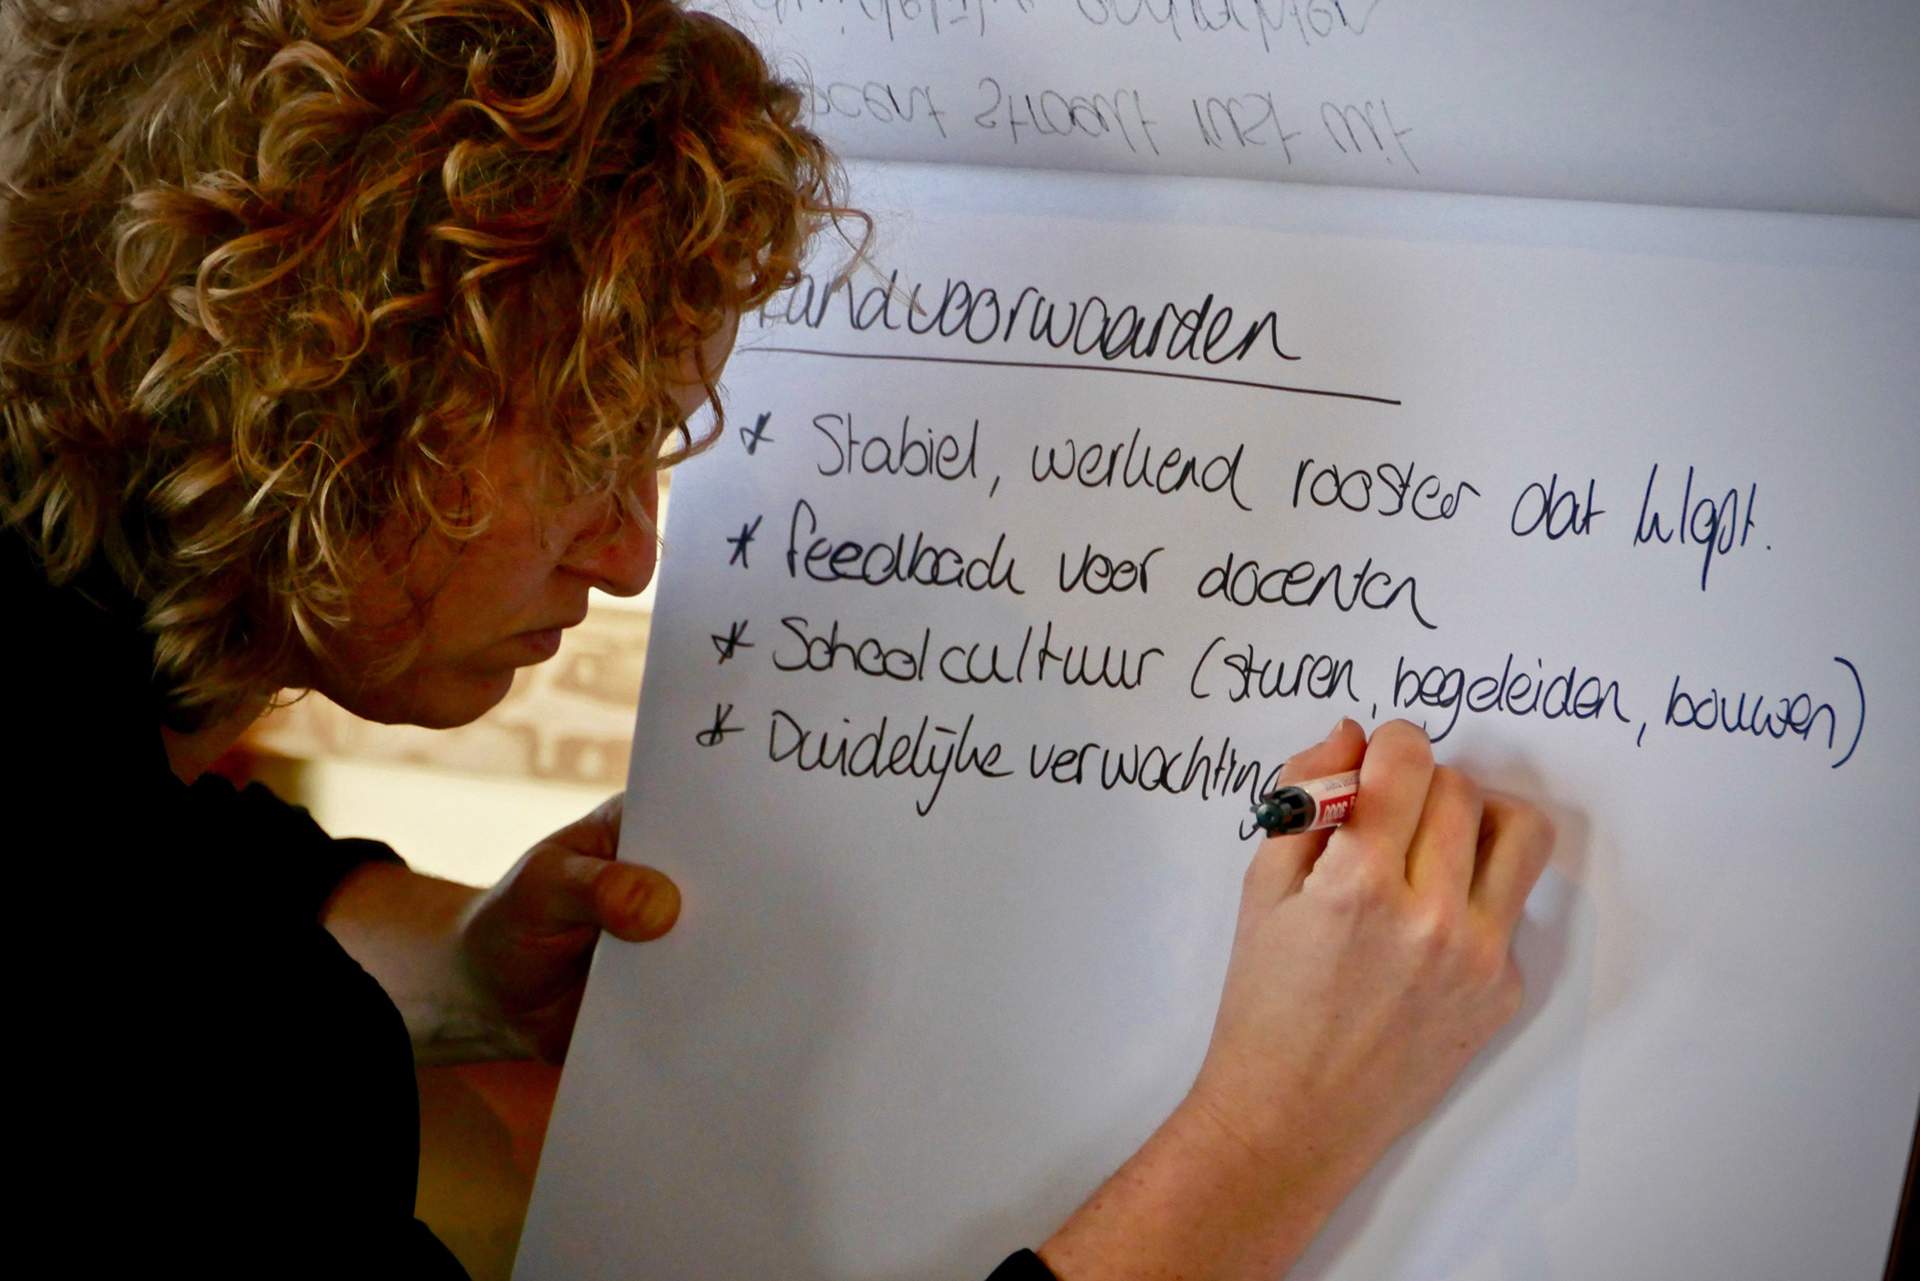 docent straalt rust uit
Randvoorwaarden
* Stabiel, werkend rooster dat klopt.
* feedback voor docenten
* Schoolcultuur (sturen, begeleiden, bouwen)
* Duidelijke verwachting
3000